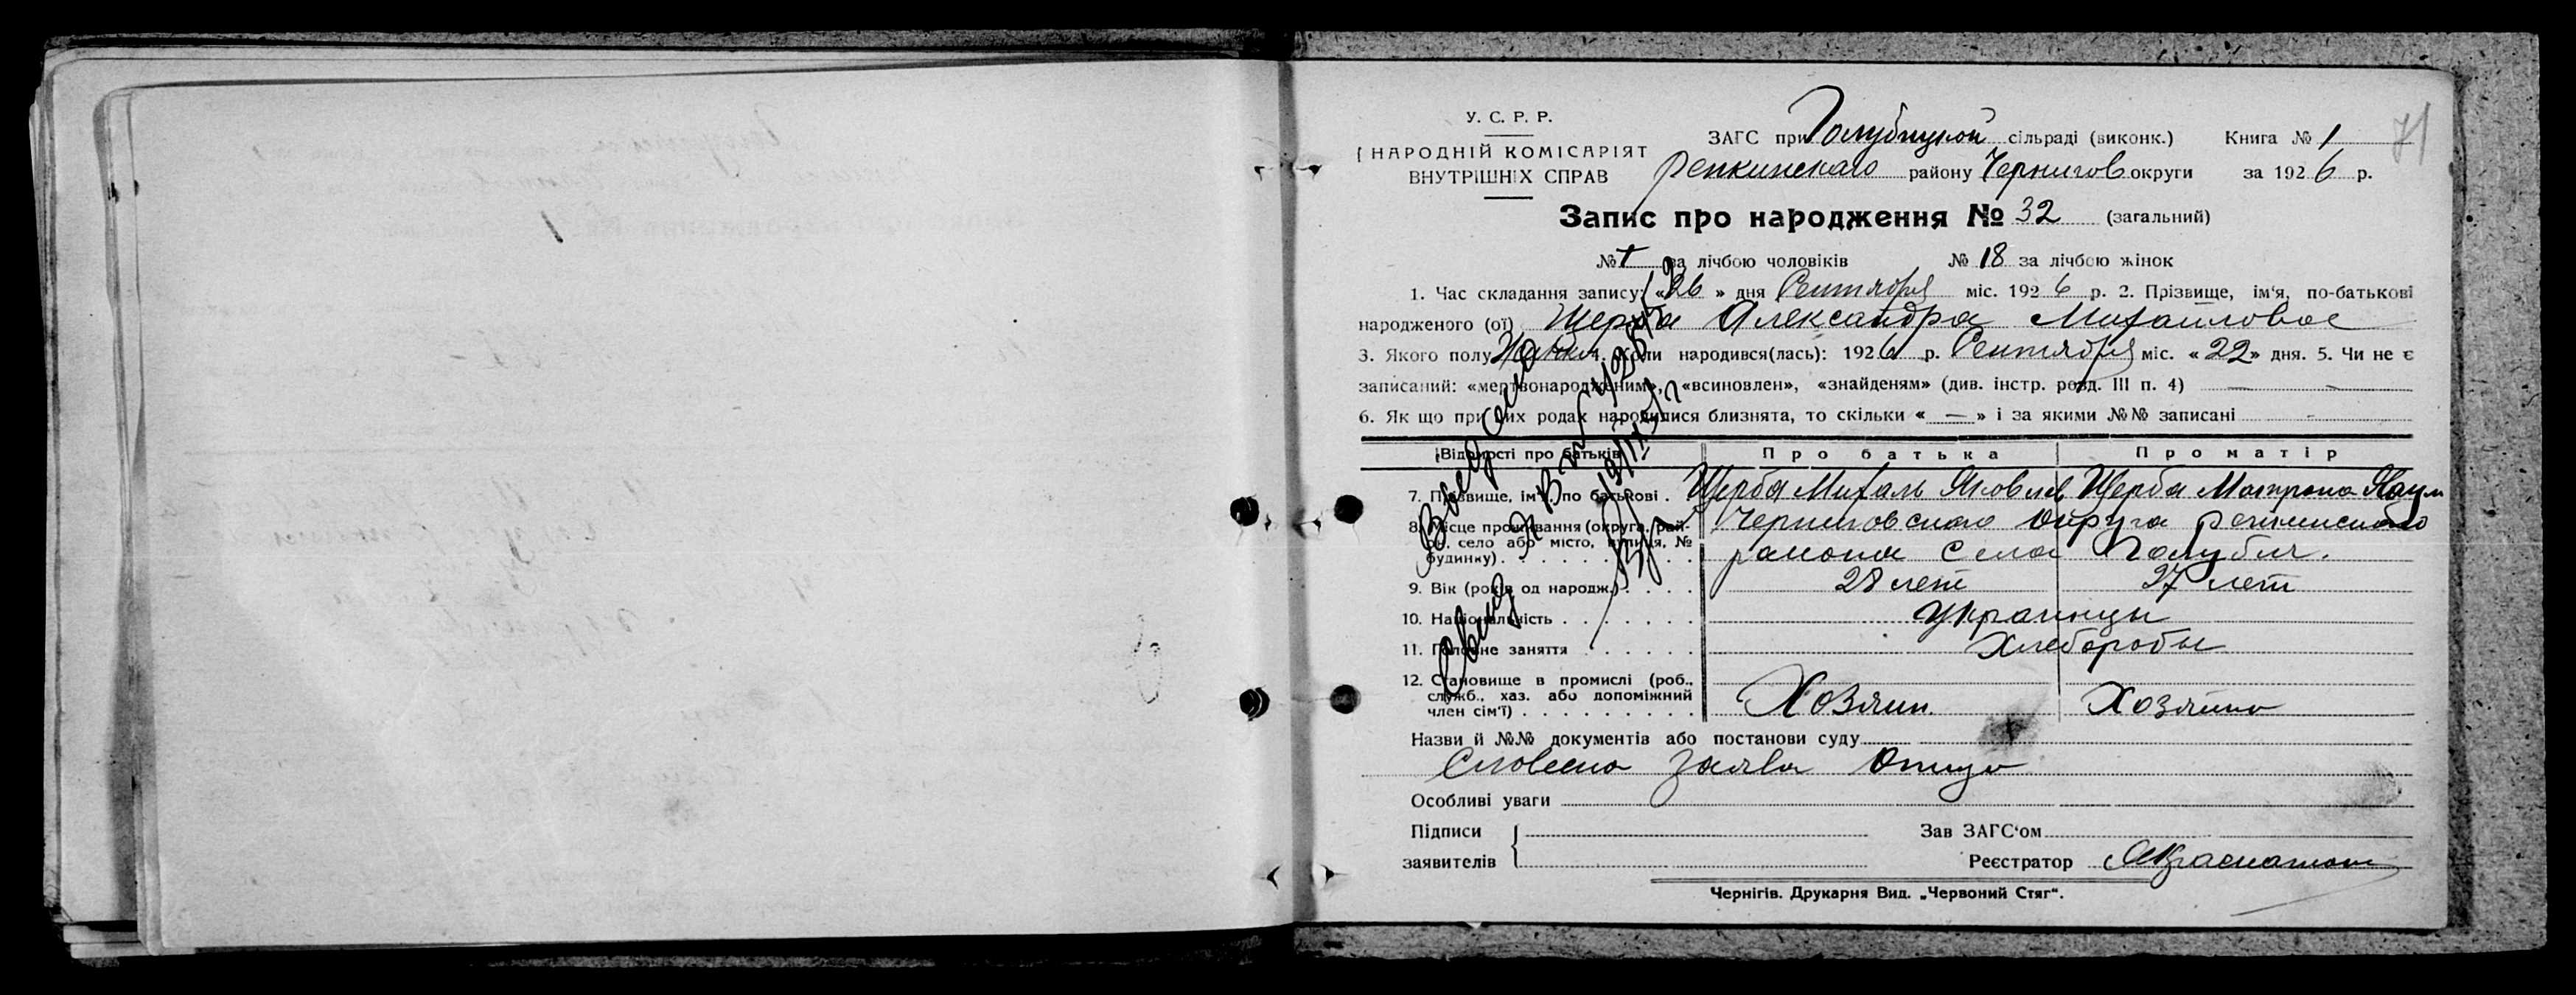 71
У. С. Р. Р.
НАРОДНІЙ КОМІСАРІЯТ
ВНУТРІШНІХ СПРАВ
ЗАГС при Голубицкой сільраді (виконк.) Книга № 1
Репкинскаго району Чернигов округи за 1926 р.
Запис про народження № 32 (загальний)
№ за лічбою чоловіків № 18 за лічбою жінок
1. Час складання запису: «26» дня Сентября міс. 1926 р. 2. Прізвище, ім'я, по-батькові
народженого (ої) Щерба Александра Михайловна
3. Якого полу 4. Коли народився(лась): 1926 р. Сентября міс. «22» дня. 5. Чи не є
записаний: «мертвонародженим», «всиновлен», «знайденям» (див. інстр. розд. III п. 4) —
6. Як що при цих родах народилися близнята, то скільки « — » і за якими №№ записані
Відомості про батьків Про батька Про матір
7. Прізвище, ім'я, по батькові. Щерба Михаль Яковлев Щерба Матрона Наум
8. Місце проживання (округа, рай-
он, село або місто, вулиця, №
будинку) . . . . . . . . . .
Черниговскаго округа репкинскаго
района села Голубич.
9. Вік (років од народж.) . . . . 28 лет 27 лет
10. Національність . . . . . . . Украинцы
11. Головне заняття . . . . . . Хлеборобы
12. Становище в промислі (роб.,
служб., хаз. або допоміжний
член сім'ї) . . . . . . . . . Хозяин. Хозяйка
Назви й №№ документів або постанови суду
Словесно заява Отца
Особливі уваги
Підписи
заявителів
Зав ЗАГС'ом
Реєстратор
Чернігів. Друкарня Вид. „Червоний Стяг“.